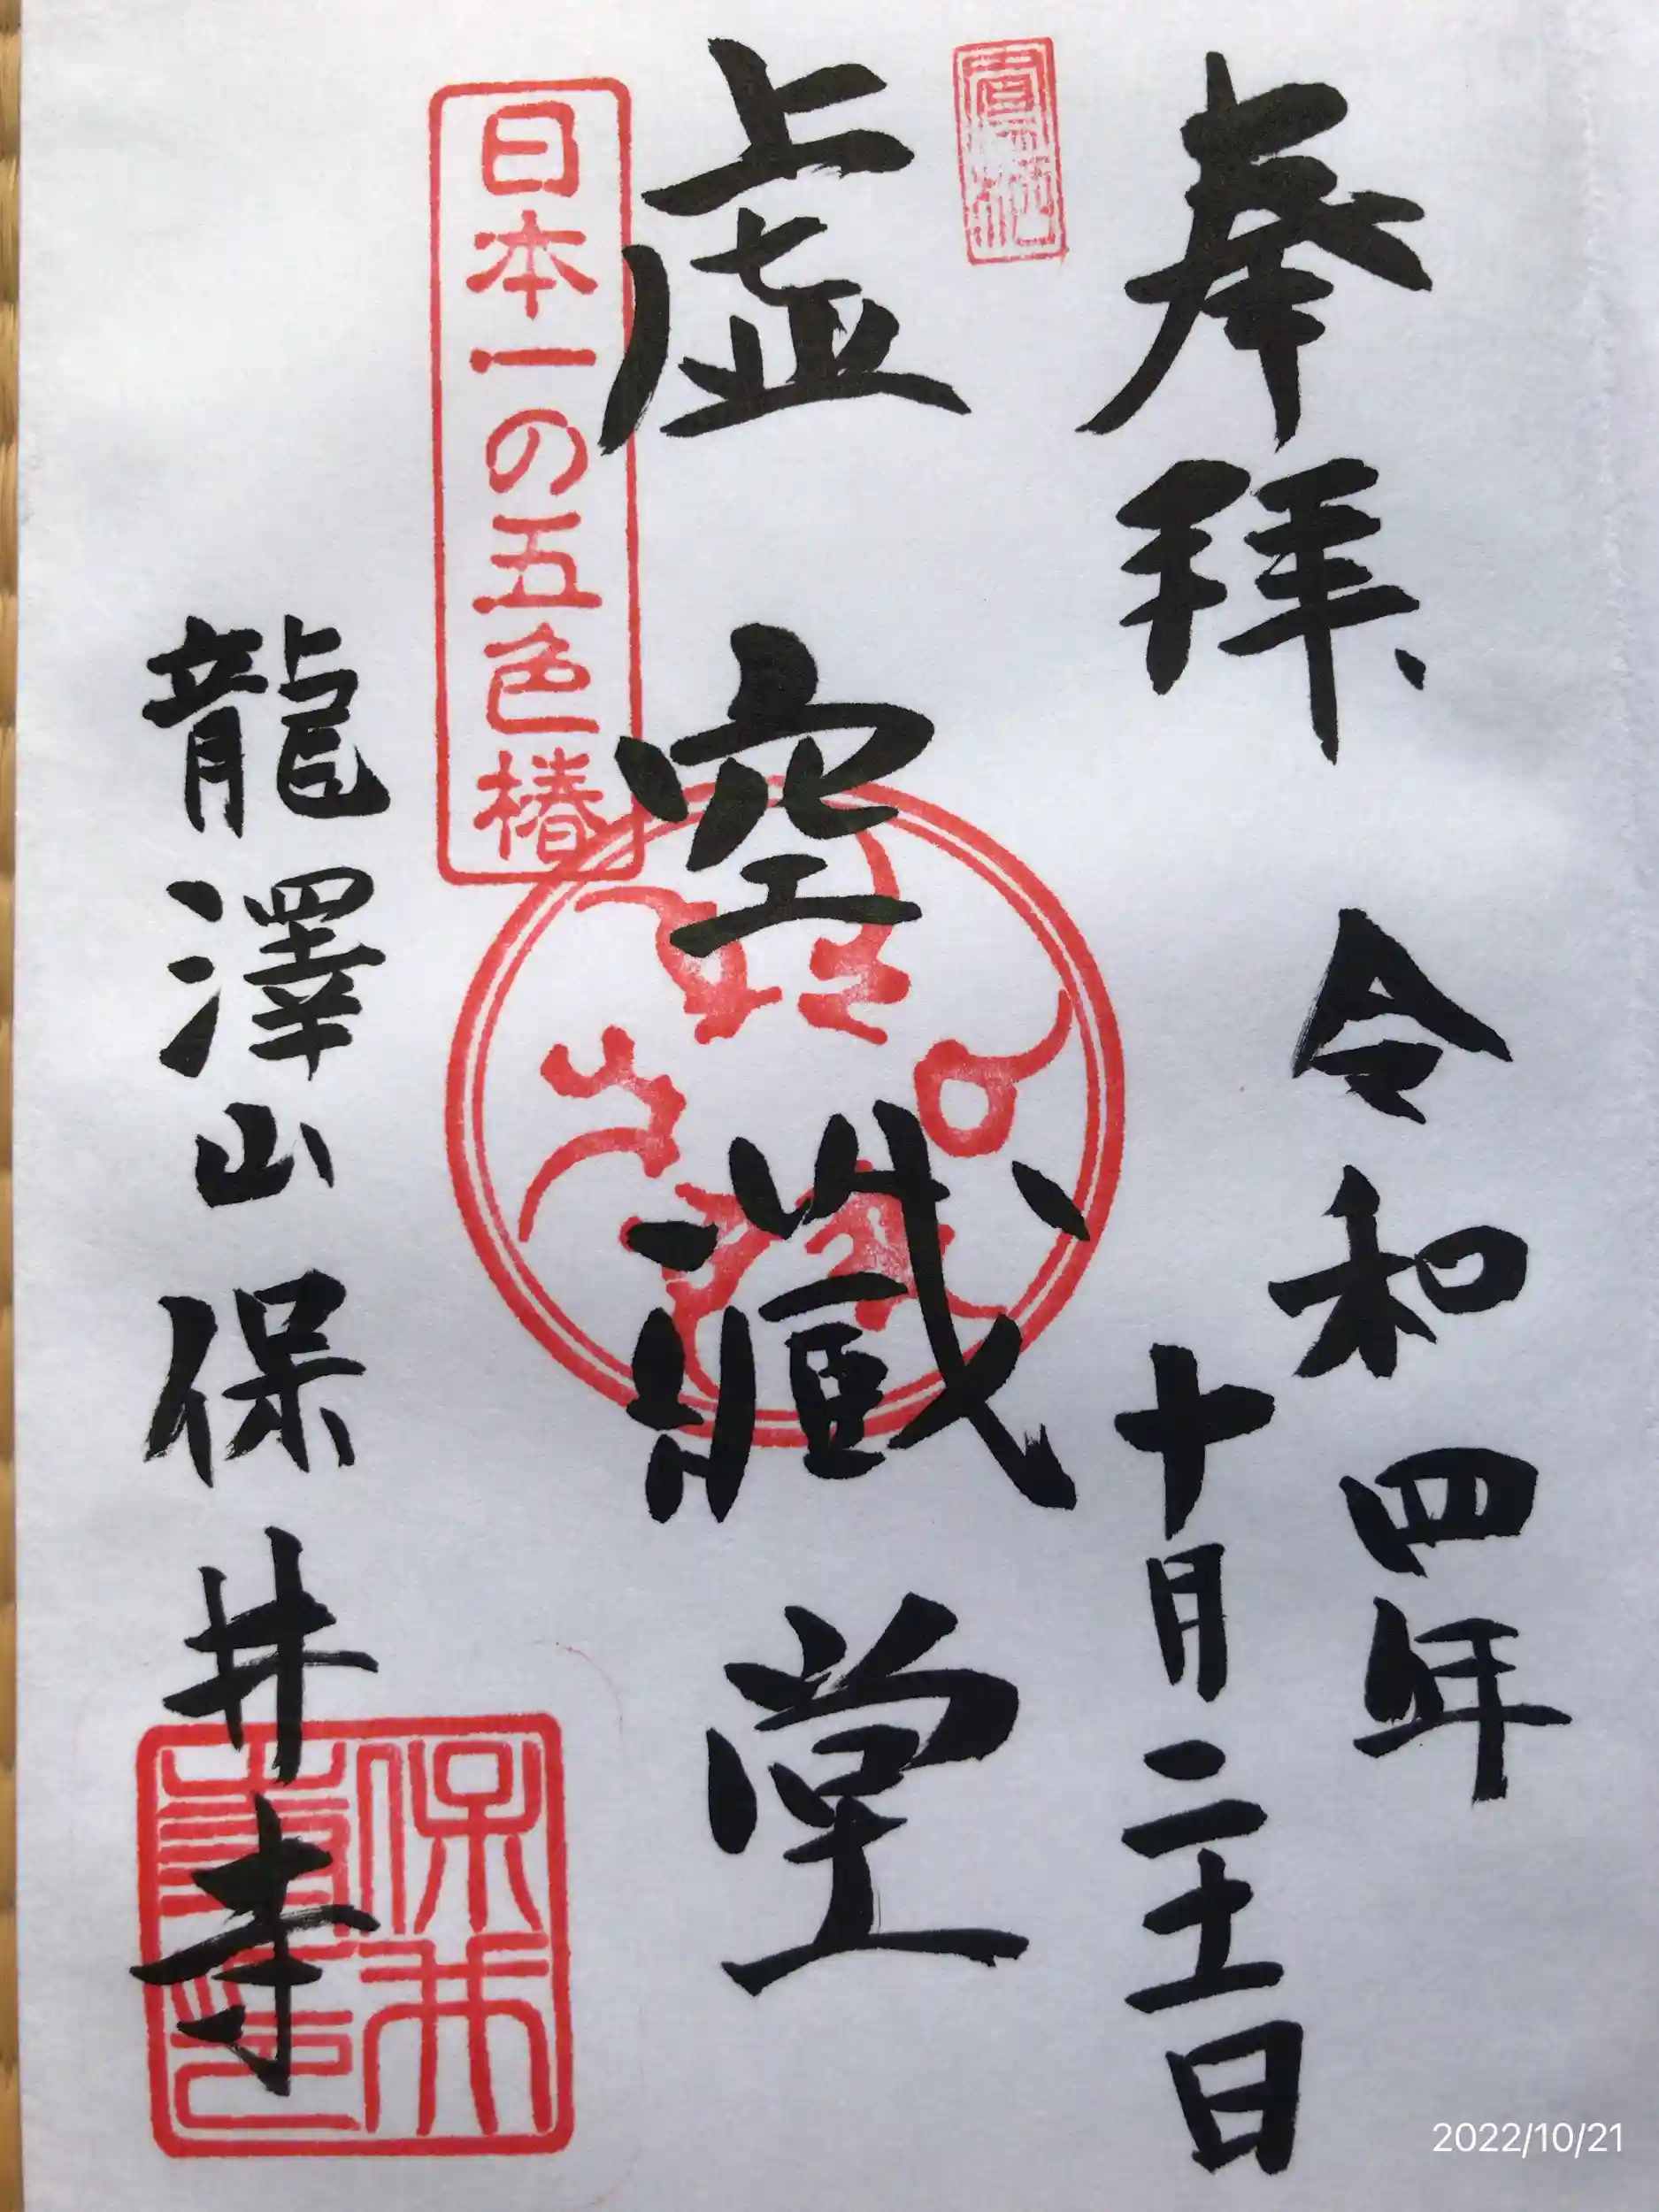 奉拜
令和四年
十月二十一日
虚空藏堂
日本一の五色椿
龍澤山保井寺
保井寺印
2022/10/21